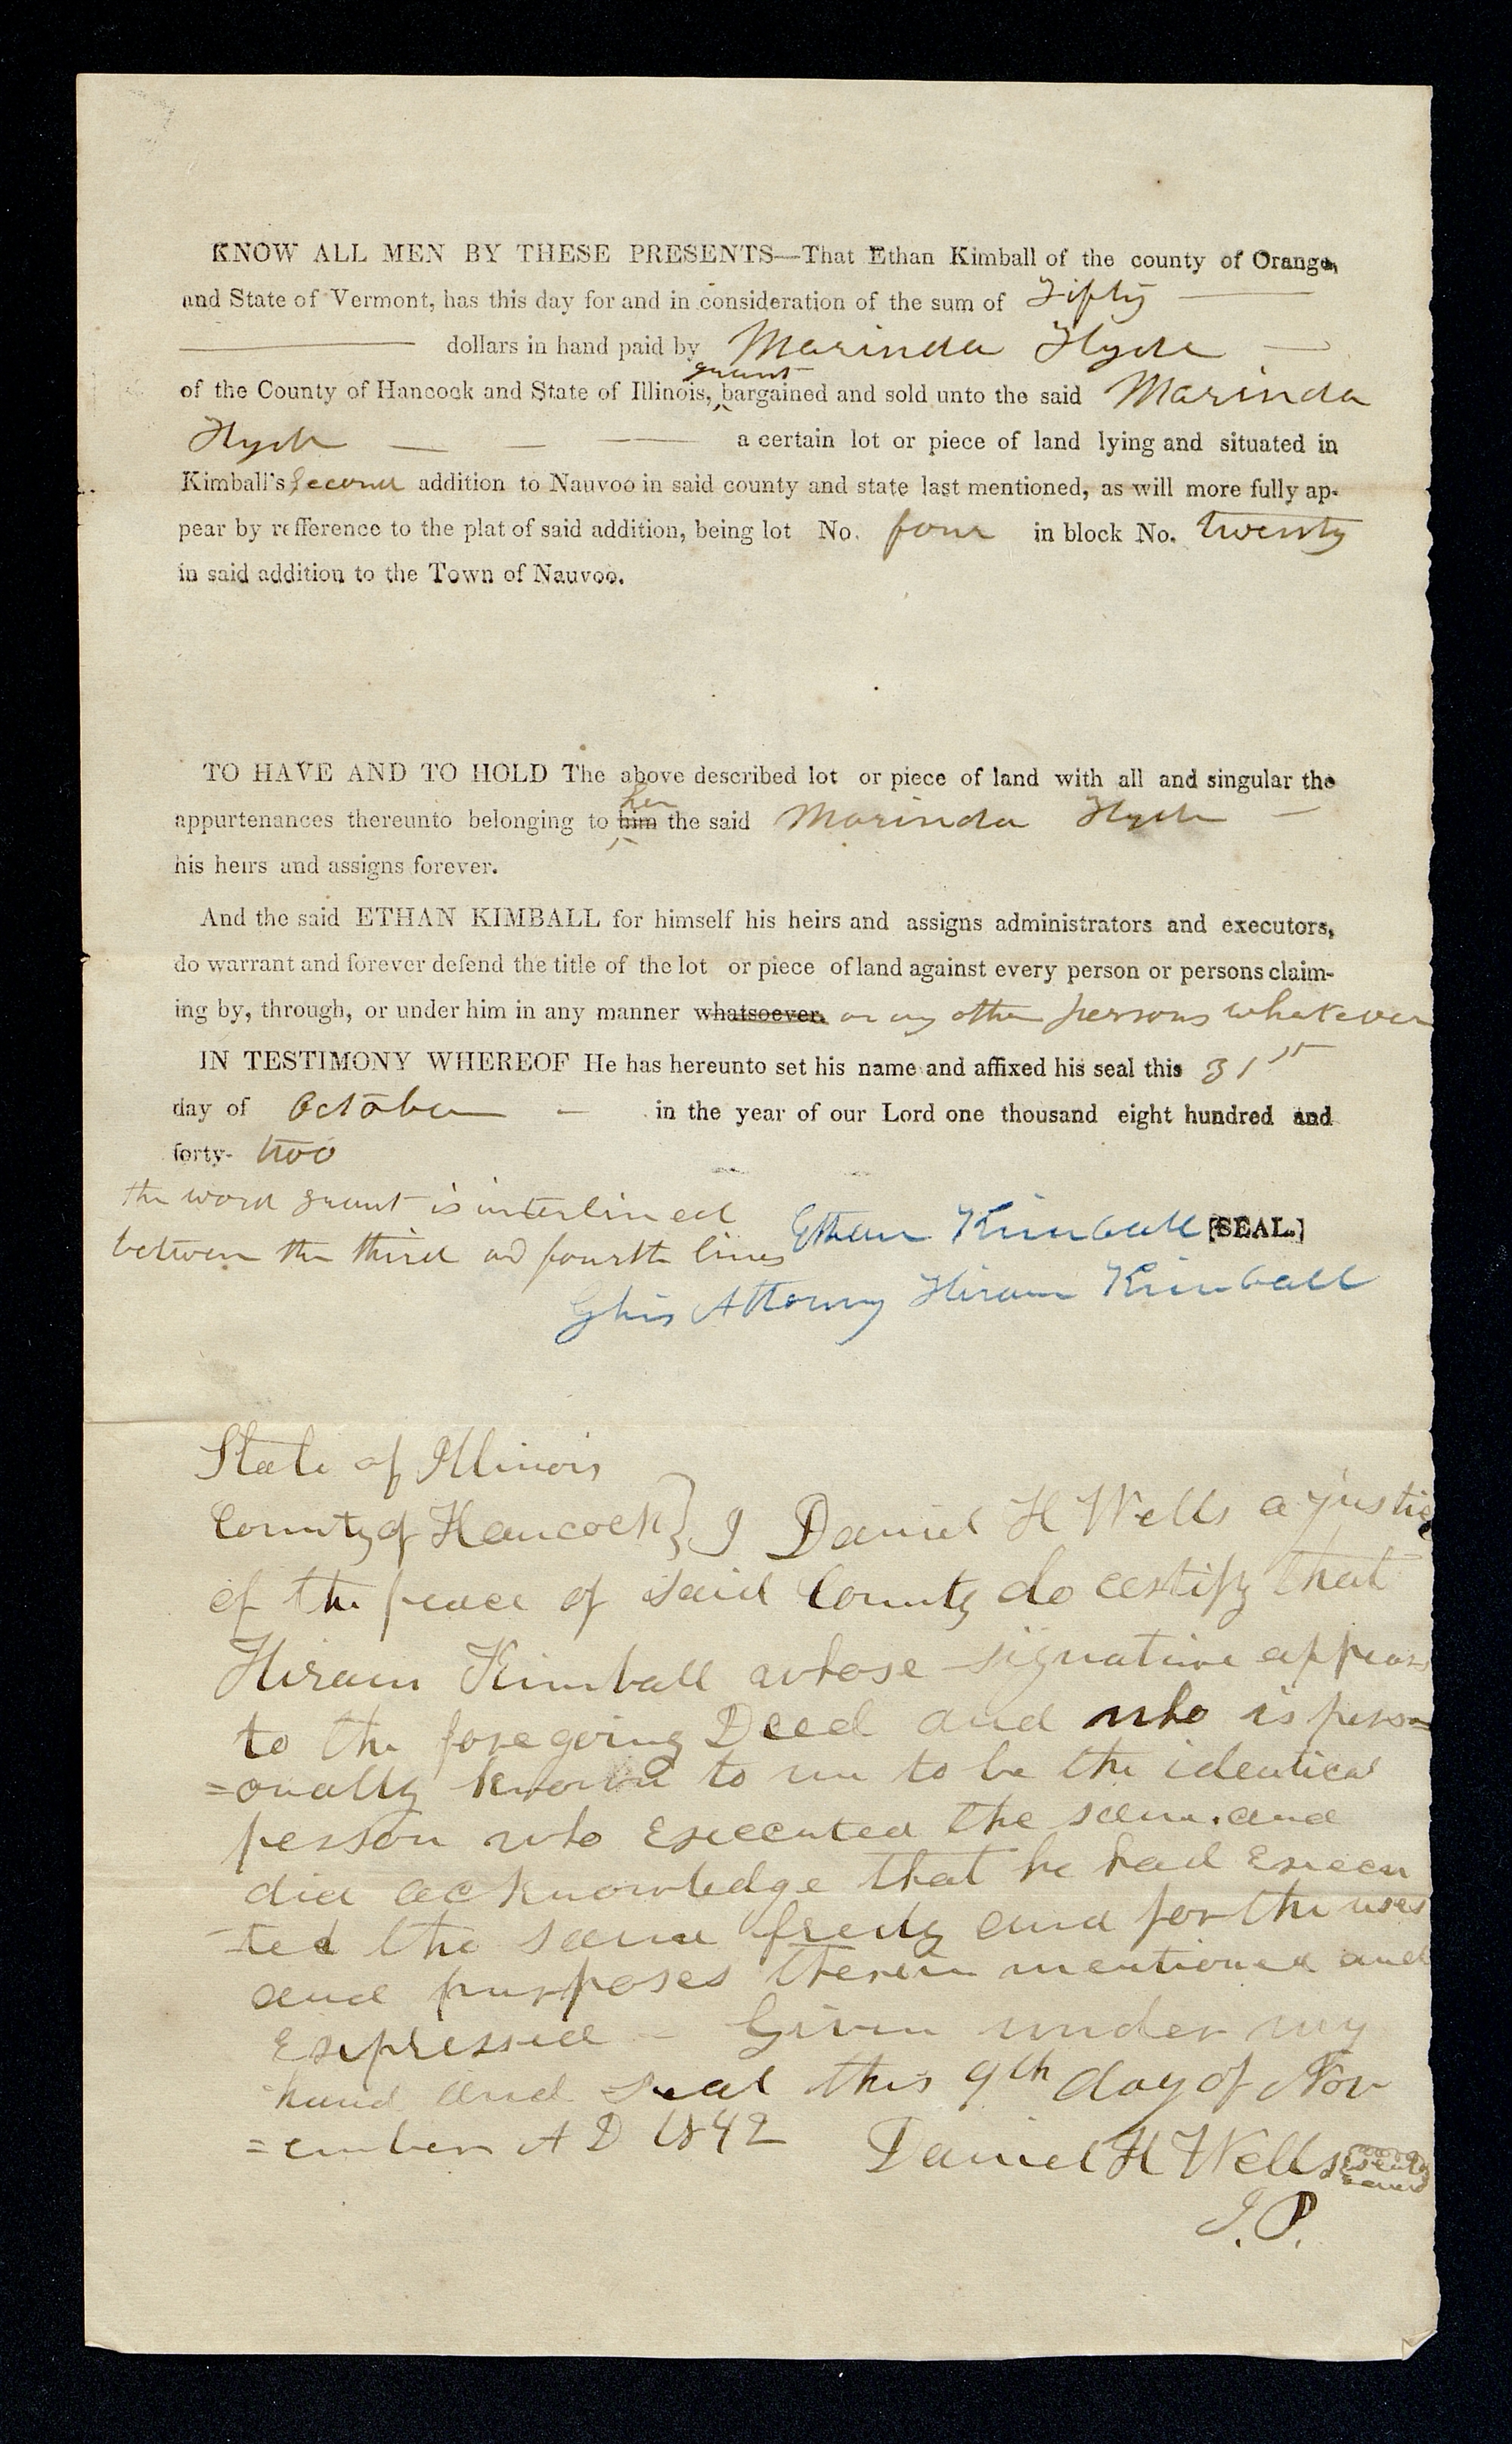 KNOW ALL MEN BY THESE PRESENTS—That Ethan Kimball of the county of Orange,
and State of Vermont, has this day for and in consideration of the sum of Fifty
dollars in hand paid by Marinda Hyde
grant
of the County of Hancock and State of Illinois, bargained and sold unto the said Marinda
Hyde a certain lot or piece of land lying and situated in
Kimball's Second addition to Nauvoo in said county and state last mentioned, as will more fully ap-
pear by refference to the plat of said addition, being lot No. four in block No. twenty
in said addition to the Town of Nauvoo.
TO HAVE AND TO HOLD The above described lot or piece of land with all and singular the
her
appurtenances thereunto belonging to him the said Marinda Hyde
his heirs and assigns forever.
And the said ETHAN KIMBALL for himself his heirs and assigns administrators and executors,
do warrant and forever defend the title of the lot or piece of land against every person or persons claim-
ing by, through, or under him in any manner whatsoever. or any other persons whatever
IN TESTIMONY WHEREOF He has hereunto set his name and affixed his seal this 31st
day of October in the year of our Lord one thousand eight hundred and
forty- two
the word grant is interlined
between the third and fourth lines
Ethan Kimball [SEAL.]
By his Attorney Hiram Kimball
State of Illinois
County of Hancock } I Daniel H Wells a justice
of the peace of said County do certify that
Hiram Kimball whose signature appears
to the foregoing Deed and who is perso=
=onally known to me to be the identical
person who Executed the same. and
did acknowledge that he had Execu
-ted the same freely and for the uses
and purposes therein mentioned and
Expressed – Given under my
hand and seal this 9th day of Nov
=ember A D 1842
Daniel H Wells
J.P.